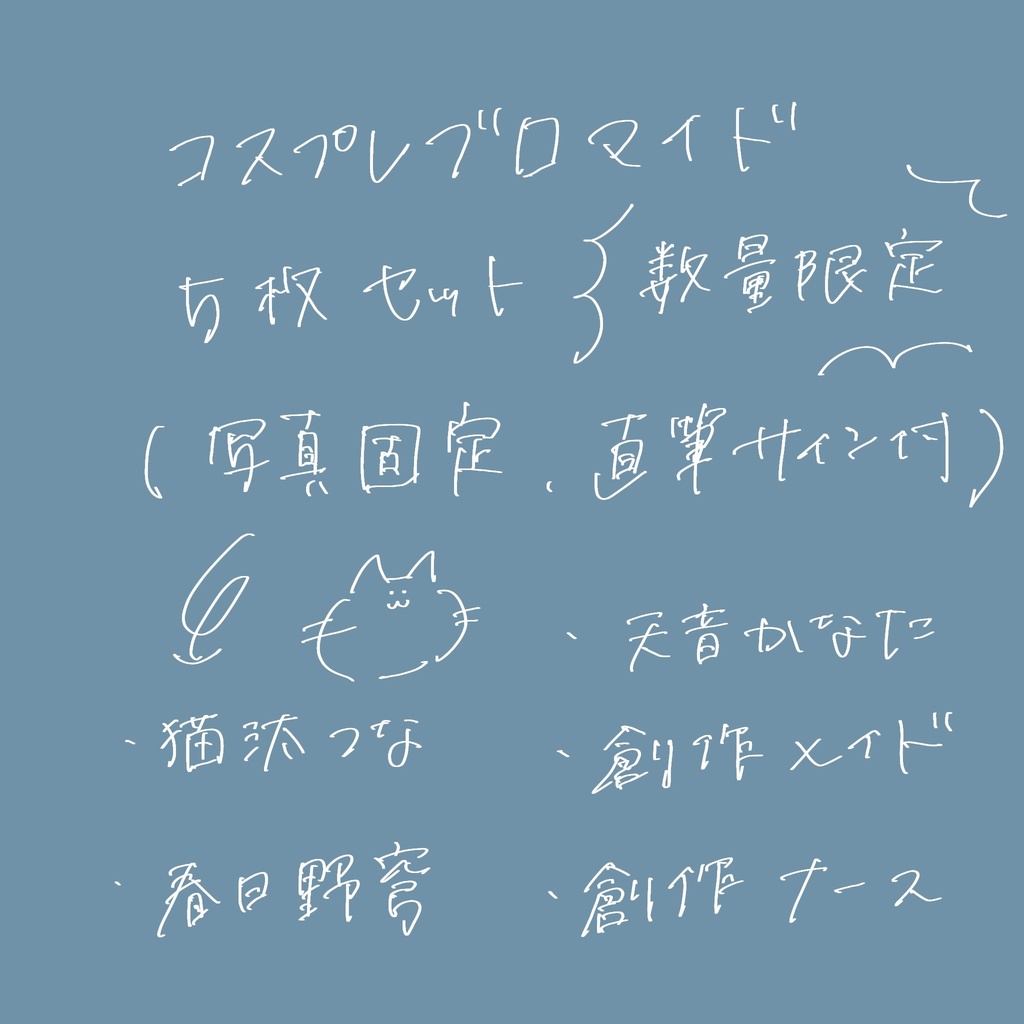 コスプレブロマイド
5枚セット
数量限定
(写真固定、直筆サイン付)
・天音かなた
・猫汰つな
・創作メイド
・春日野穹
・創作ナース